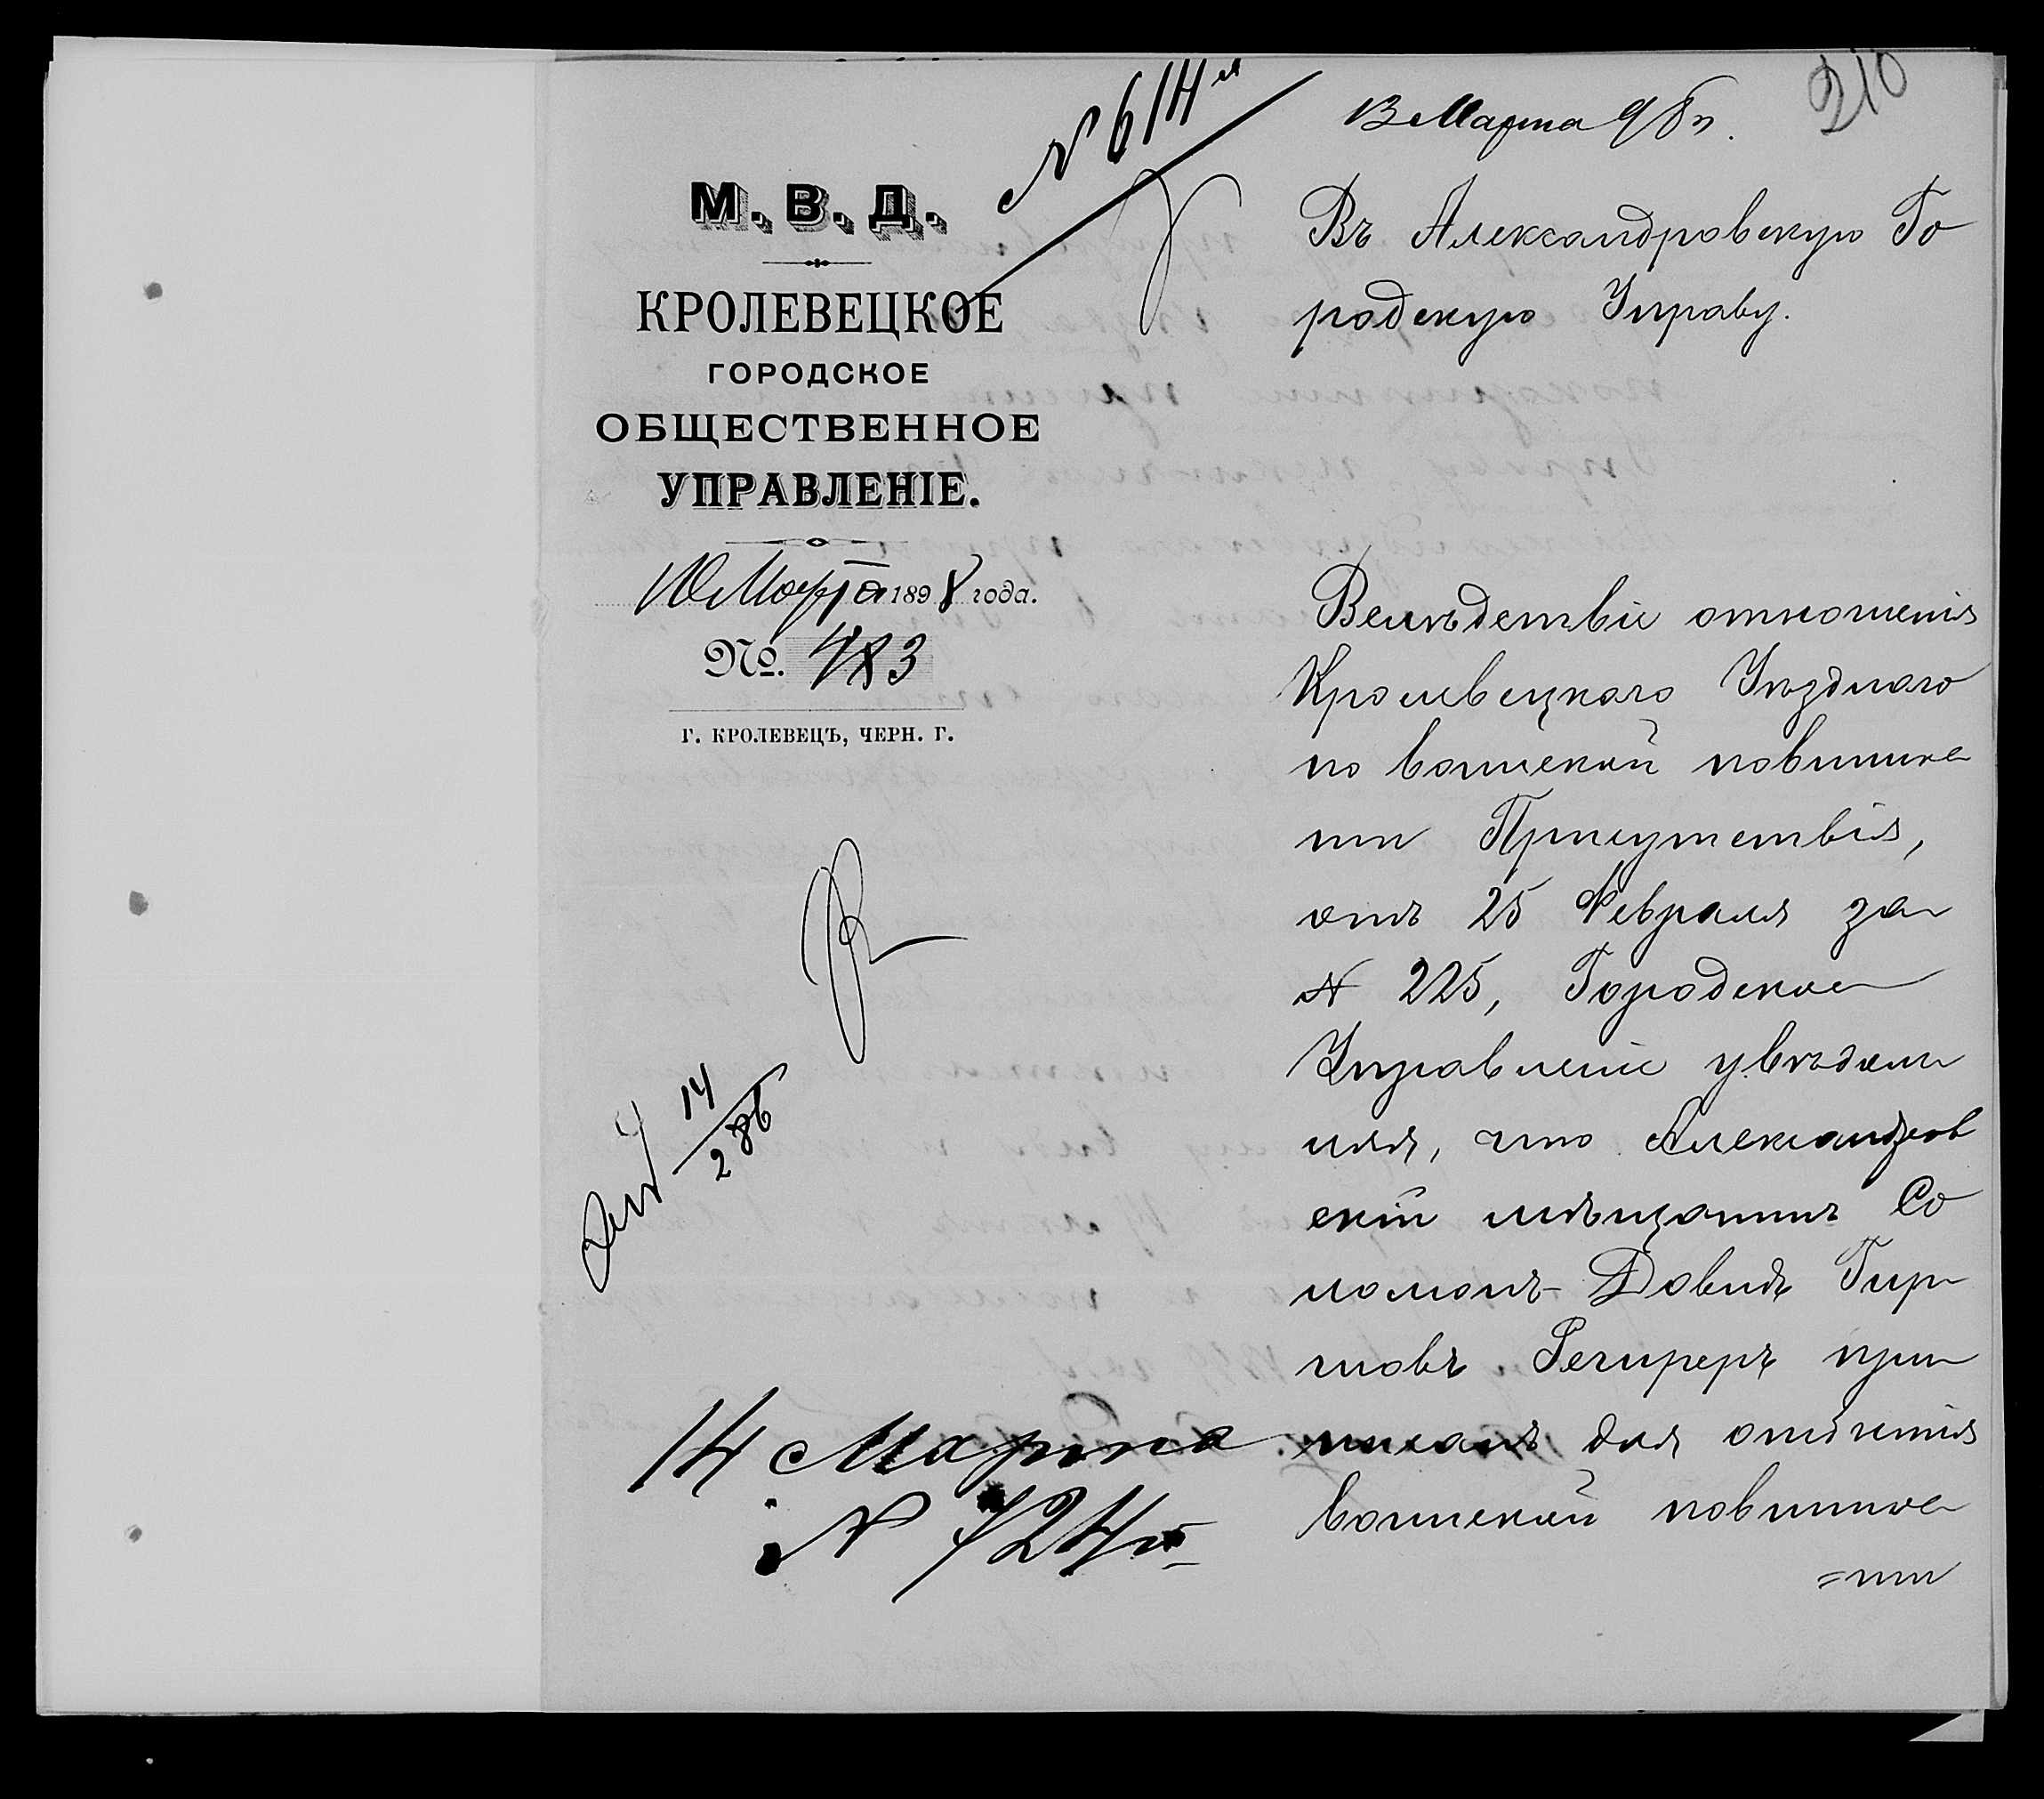 210
13 Марта 98 г.
№ 614
М. В. Д.
КРОЛЕВЕЦКОЕ
ГОРОДСКОЕ
ОБЩЕСТВЕННОЕ
УПРАВЛЕНІЕ.
10 Марта 1898 года.
№. 483
Г. КРОЛЕВЕЦЪ, ЧЕРН. Г.
14
286
14 Марта
№ 724
Въ Александровскую Го
родскую Управу.
Вслѣдствіе отношенія
Кролевецкаго Уѣзднаго
по воинской повинно
сти Присутствія,
отъ 25 Февраля за
№ 225, Городское
Управленіе увѣдомл
яя, что Александров
скій мѣщанинъ Со
ломонъ-Довидъ Гир
шовъ Речиреръ при
писанъ для отбытія
воинской повинно
=сти